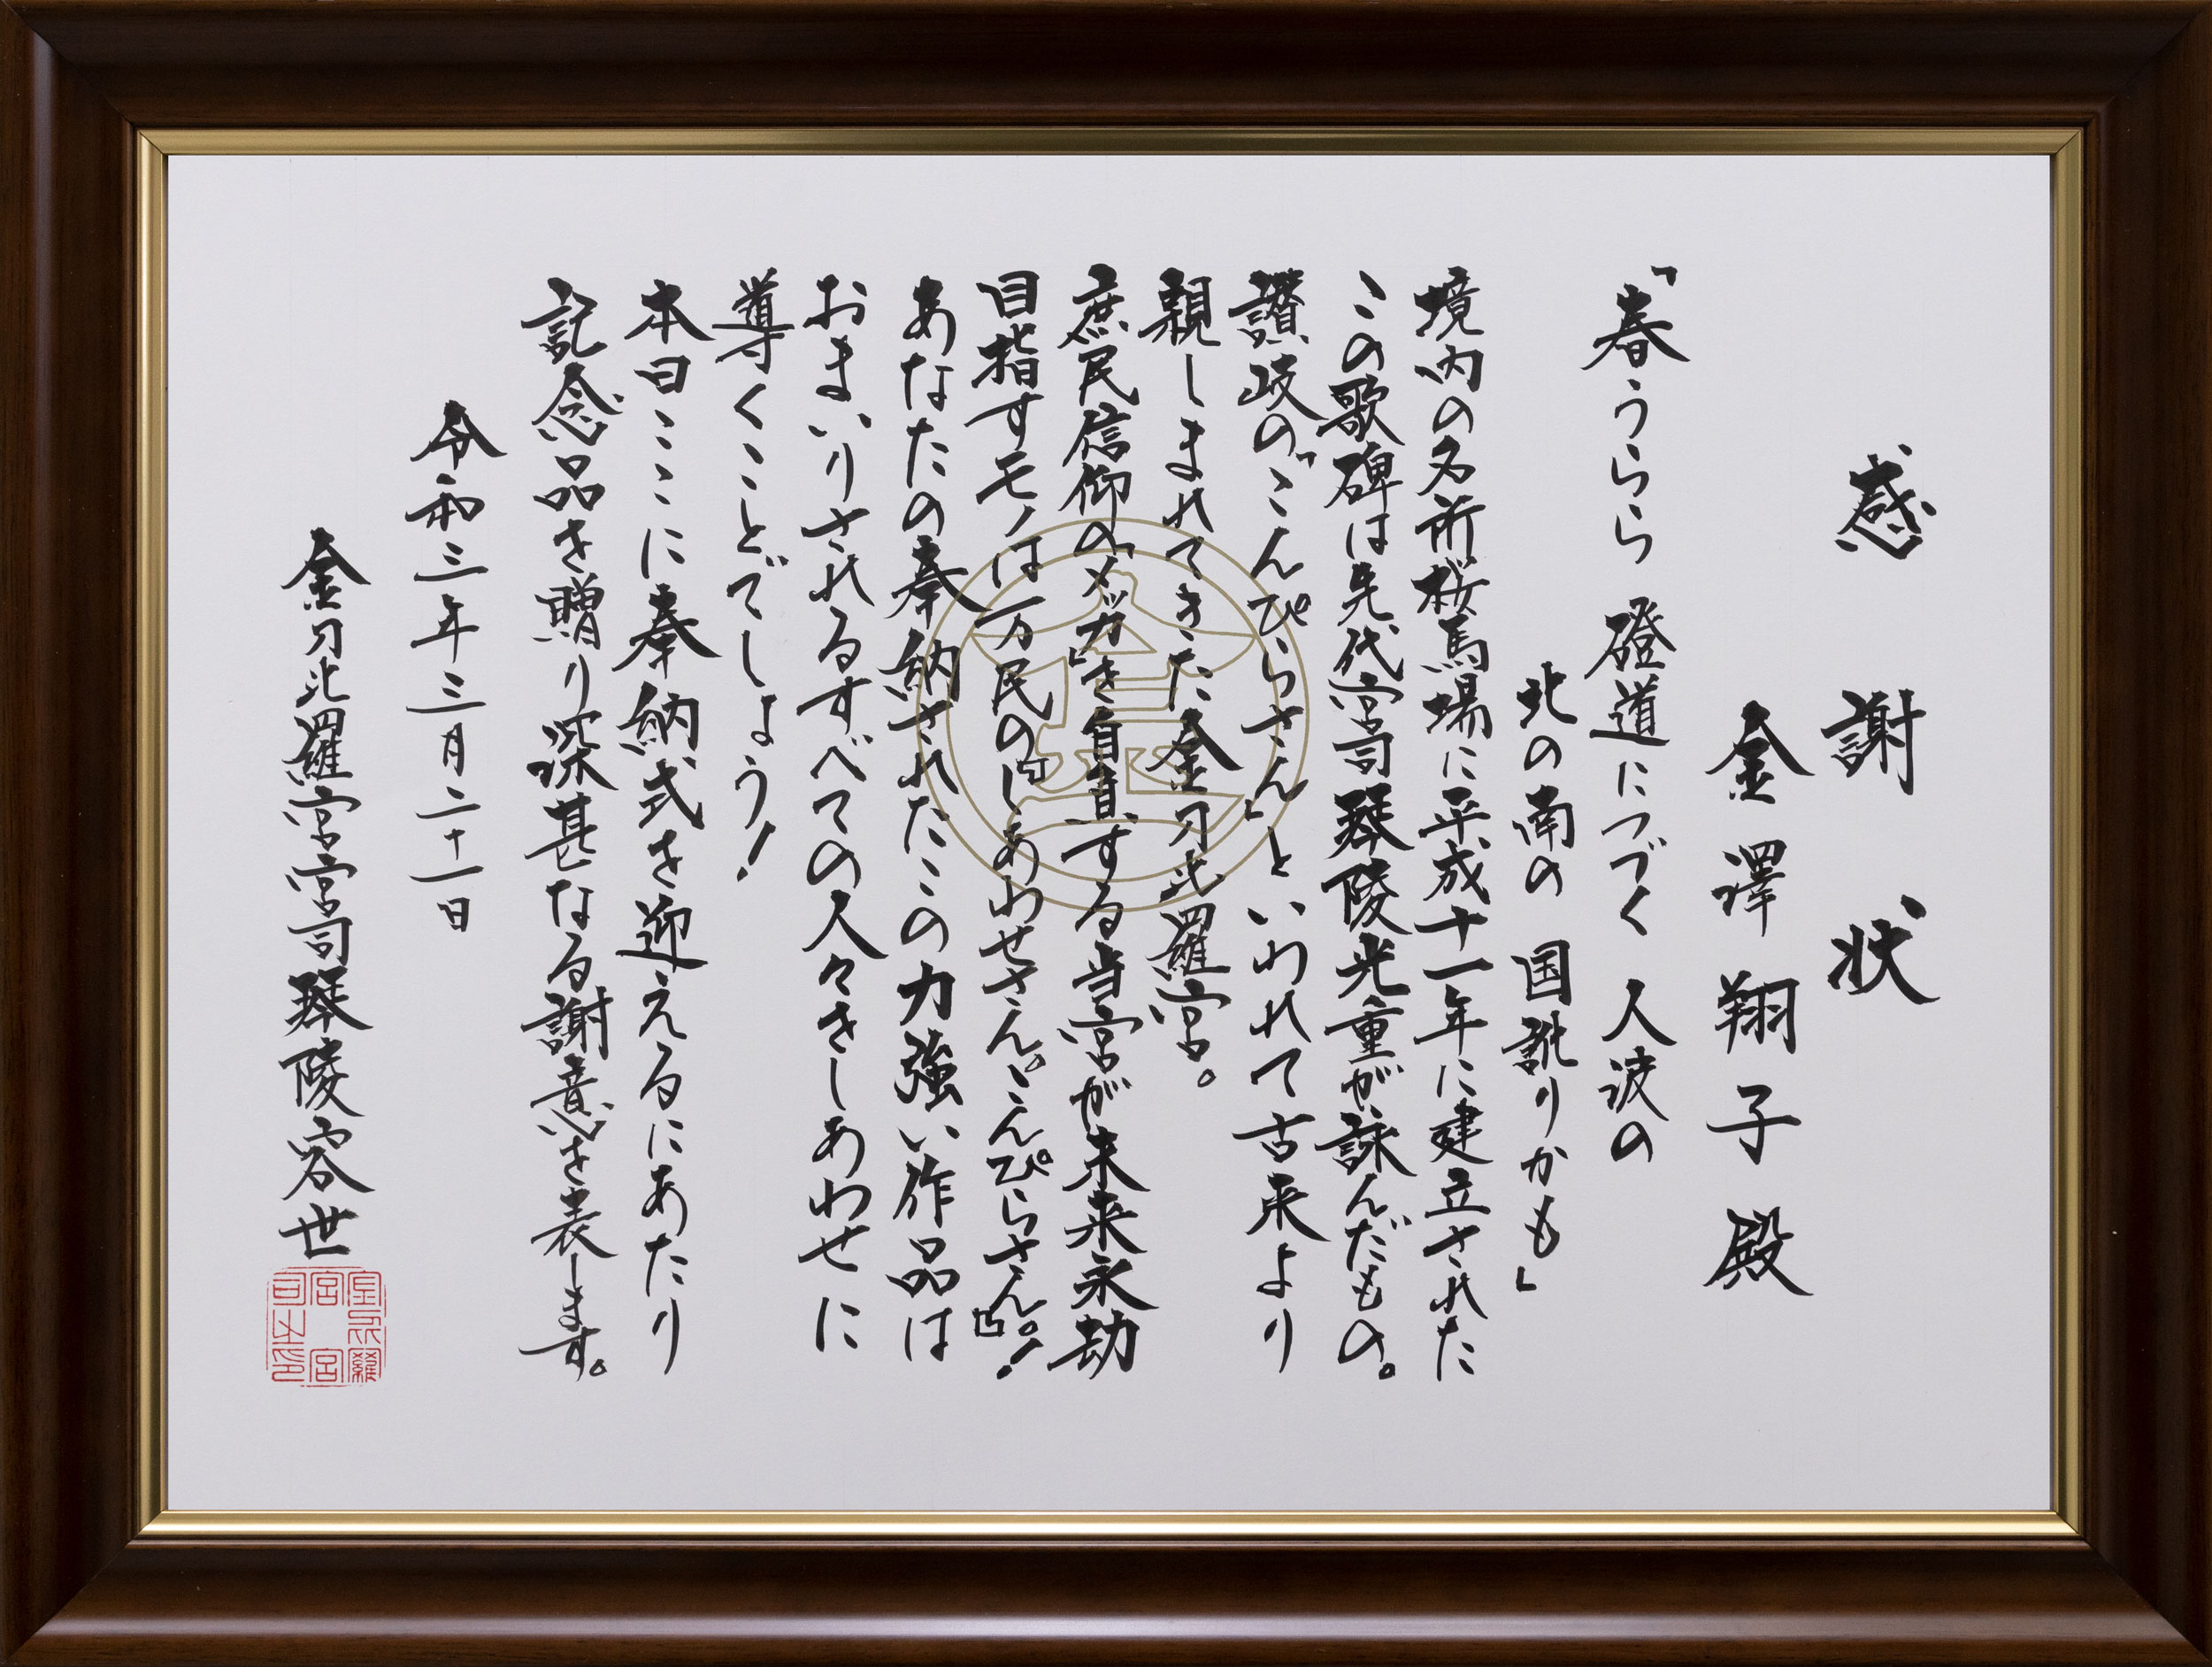 感謝状
金澤翔子殿
「春うらら 磴道につづく 人波の
北の南の 国訛りかも」
境内の名所桜馬場に平成十一年に建立された
この歌碑は先代宮司琴陵光重が詠んだもの。
讃岐の「こんぴらさん」といわれて古来より
親しまれてきた金刀比羅宮。
庶民信仰の「メッカ」を自負する当宮が未来永劫
目指すモノは万民の『しあわせさん。こんぴらさん。』！
あなたの奉納されたこの力強い作品は
おまいりされるすべての人々をしあわせに
導くことでしょう！
本日ここに奉納式を迎えるにあたり
記念品を贈り深甚なる謝意を表します。
令和三年三月二十一日
金刀比羅宮宮司琴陵容世
金刀比羅
宮宮
司之印